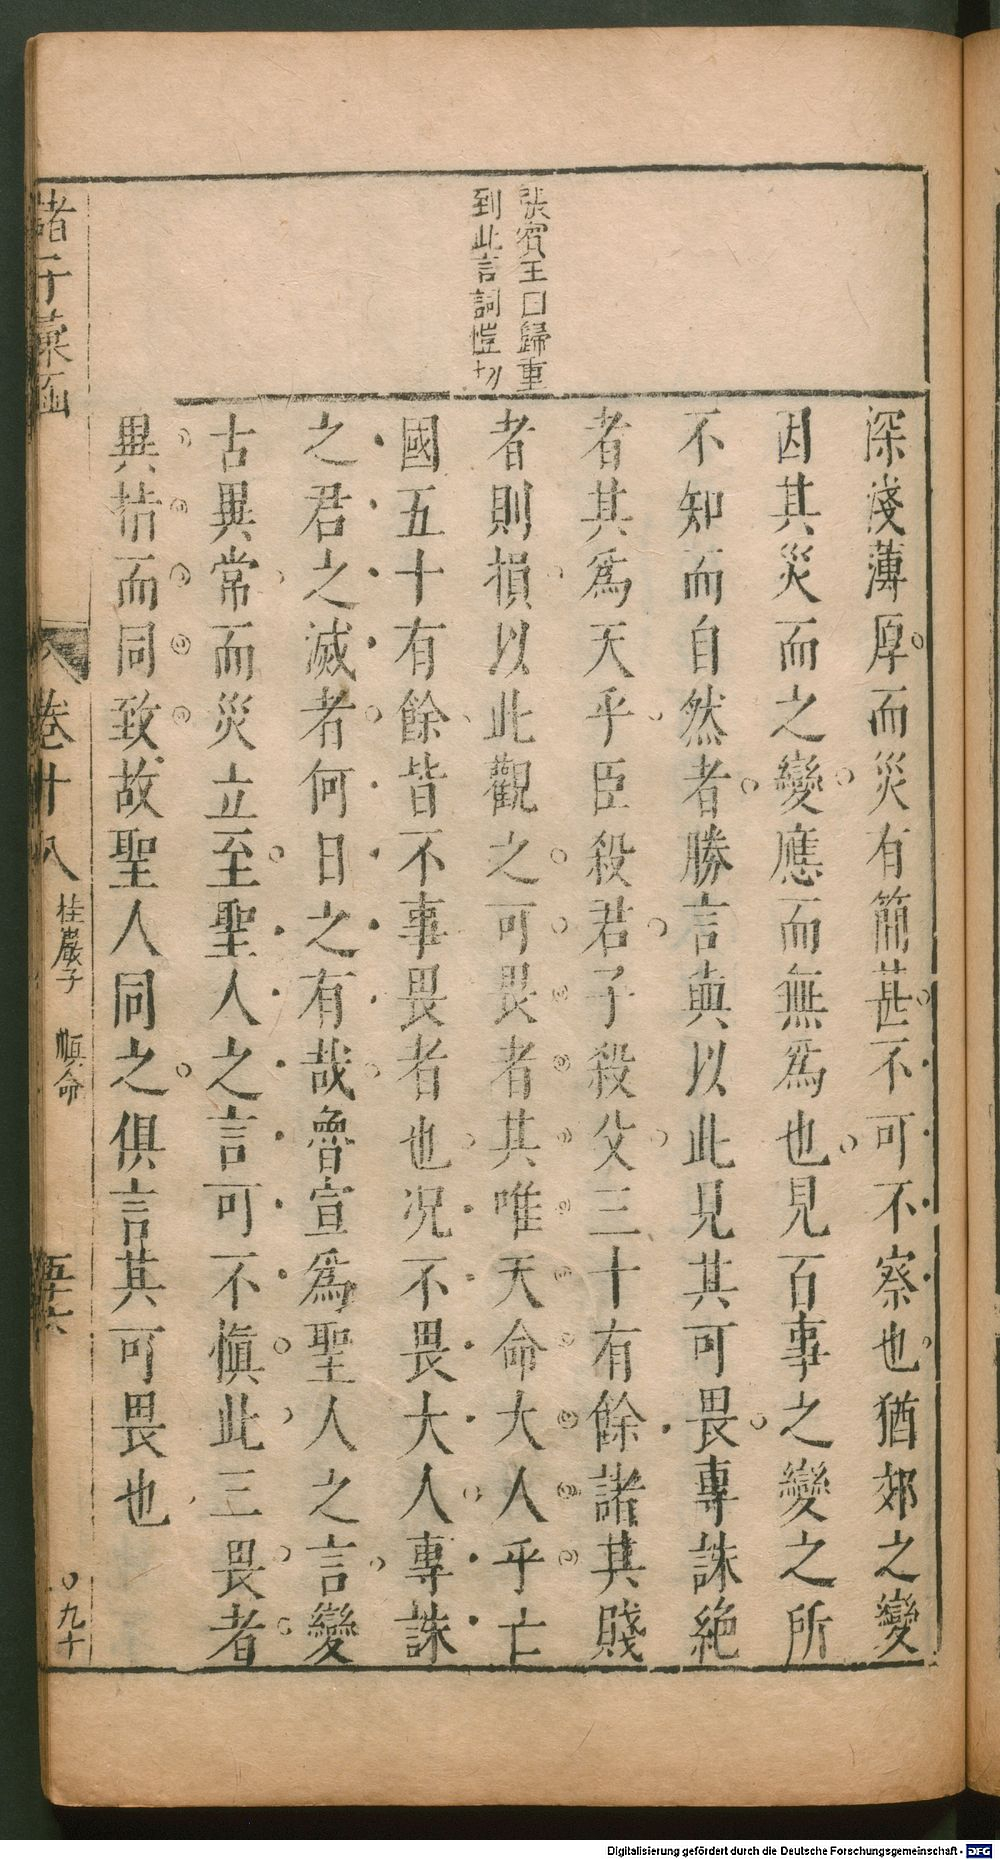 張賓王曰歸重
到此言詞愷切
深淺薄厚而災有簡甚不可不察也猶郊之變
因其災而之變應而無爲也見百事之變之所
不知而自然者勝言與以此見其可畏專誅絕
者其爲天乎臣殺君子殺父三十有餘諸其賤
者則損以此觀之可畏者其唯天命大人乎亡
國五十有餘皆不事畏者也况不畏大人專誅
之君之滅者何日之有哉魯宣爲聖人之言變
古異常而災立至聖人之言可不愼此三畏者
異指而同致故聖人同之俱言其可畏也
諸子彙函
卷十八
桂巖子 順命
五十六
〇九十
Digitalisierung gefördert durch die Deutsche Forschungsgemeinschaft - DFG